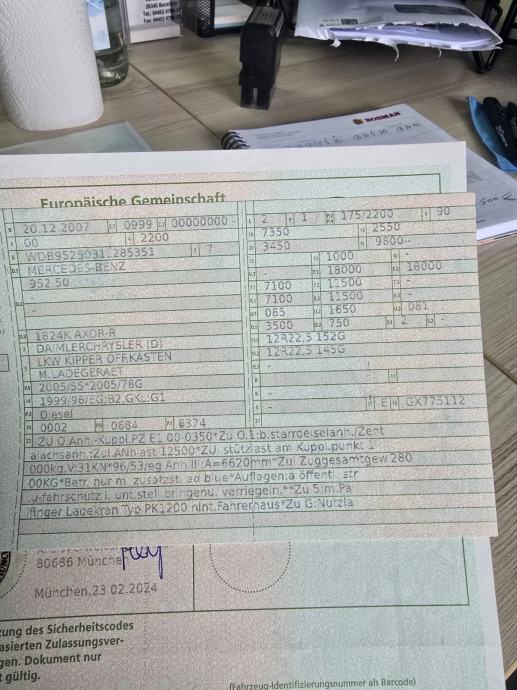 26345 Bockhorn
BOSMAN
Europäische Gemeinschaft
20.12.2007 0999 00000000-
00 2200
WDB9525031L285351 7
MERCEDES-BENZ
952.50
-
-
1824K AXOR-R
DAIMLERCHRYSLER (D)
LKW KIPPER OFF.KASTEN
M.LADEGERAET
2005/55*2005/78G
1999/96/EG;B2,GKL:G1
Diesel
0002 0684 6374
2 1 175/2200 90
7350 2550
3450 9800--
1000 -
- 18000 18000
7100 11500 -
7100 11500 -
085 1650 081
3500 750 2 -
12R22,5 152G
12R22,5 145G
-
-
-
E GX775112
ZU O.Anh.-Kupol.PZ E1 00-0350*Zu O.1:b.starrdeiselanh./Zent
alachsanh.:Zul.ANhlast 12500*ZU. stützlast am Kupol.punkt 1
000kg,V:31KN*96/53/eg Anh.III:A=6620mm*Zul Zuggesamtgew 280
00KG*Betr. nur m. zusatzst. ad blue*Auflagen:a öffentl str
.u/fahrschutz i. unt.stell.bringenu. verriegeln.**Zu 5:m.Pa
lfinger Ladekran Typ PK1200 hint.Fahrerhaus*Zu G:Nutzla
80686 München
München,23.02.2024
zung des Sicherheitscodes
asierten Zulassungsver-
gen. Dokument nur
t gültig.
(Fahrzeug-Identifizierungsnummer als Barcode)